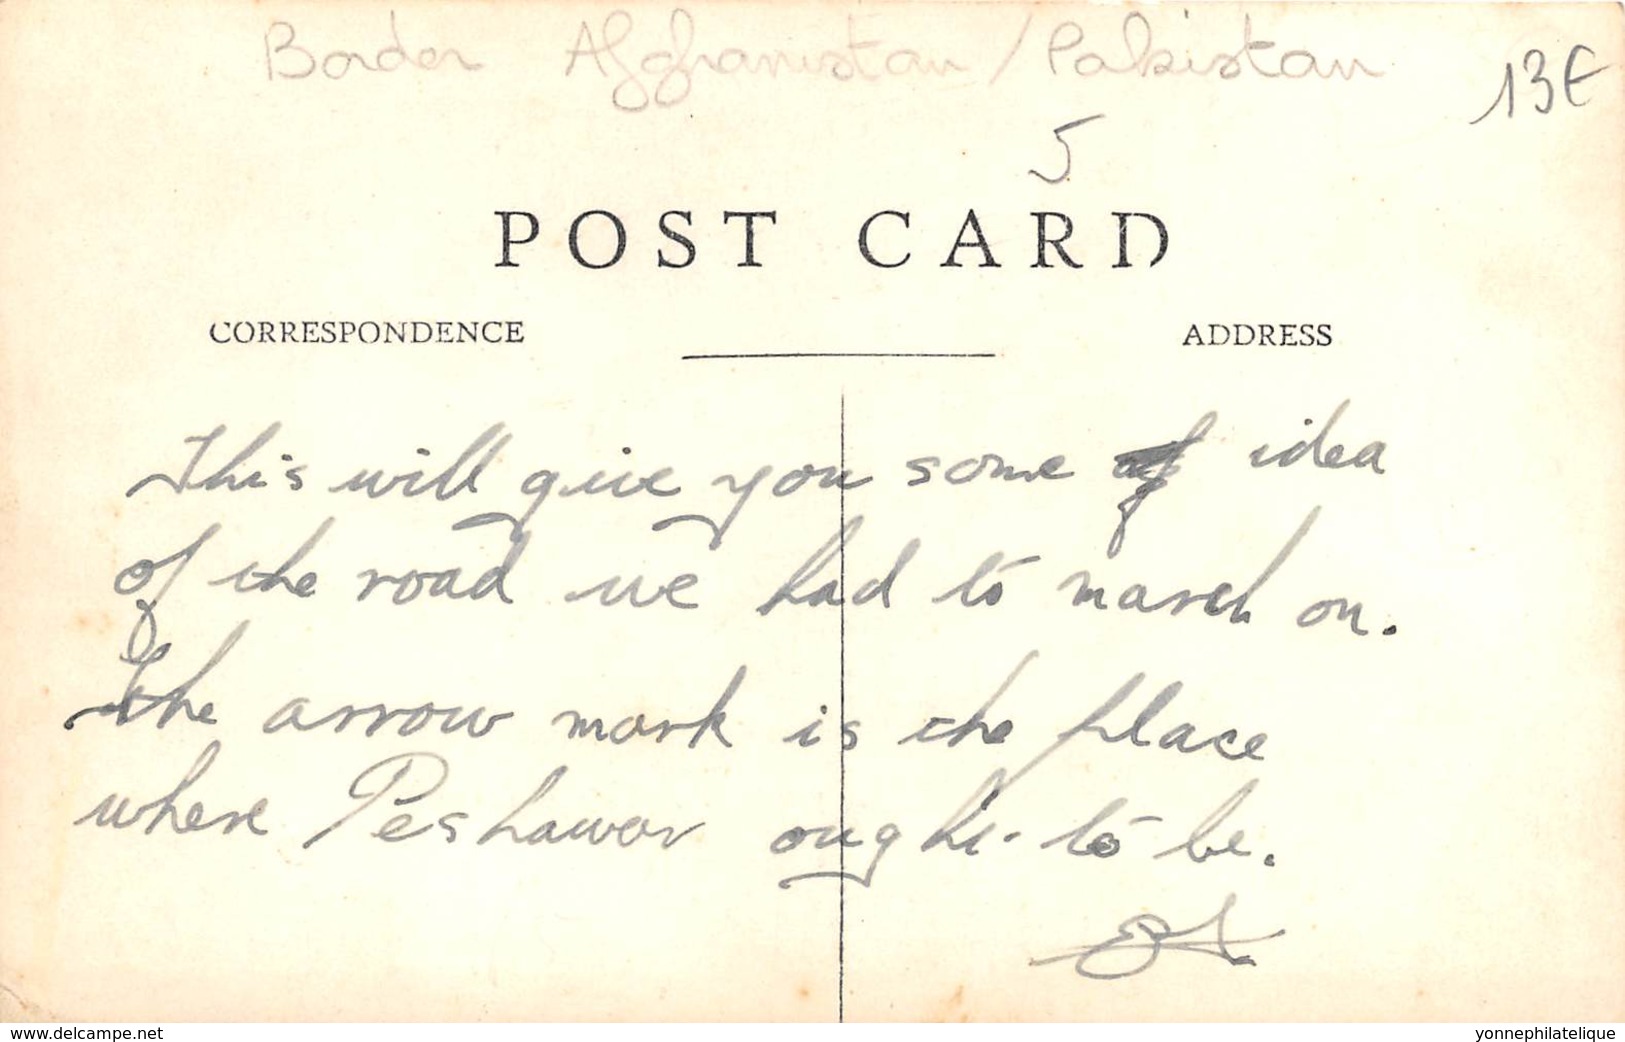 Border Afghanistan / Pakistan
13€
5
POST CARD
CORRESPONDENCE ADDRESS
This will give you some idea
of the road we had to march on.
The arrow mark is the place
where Peshawar ought to be.
www.delcampe.net yonnephilatelique